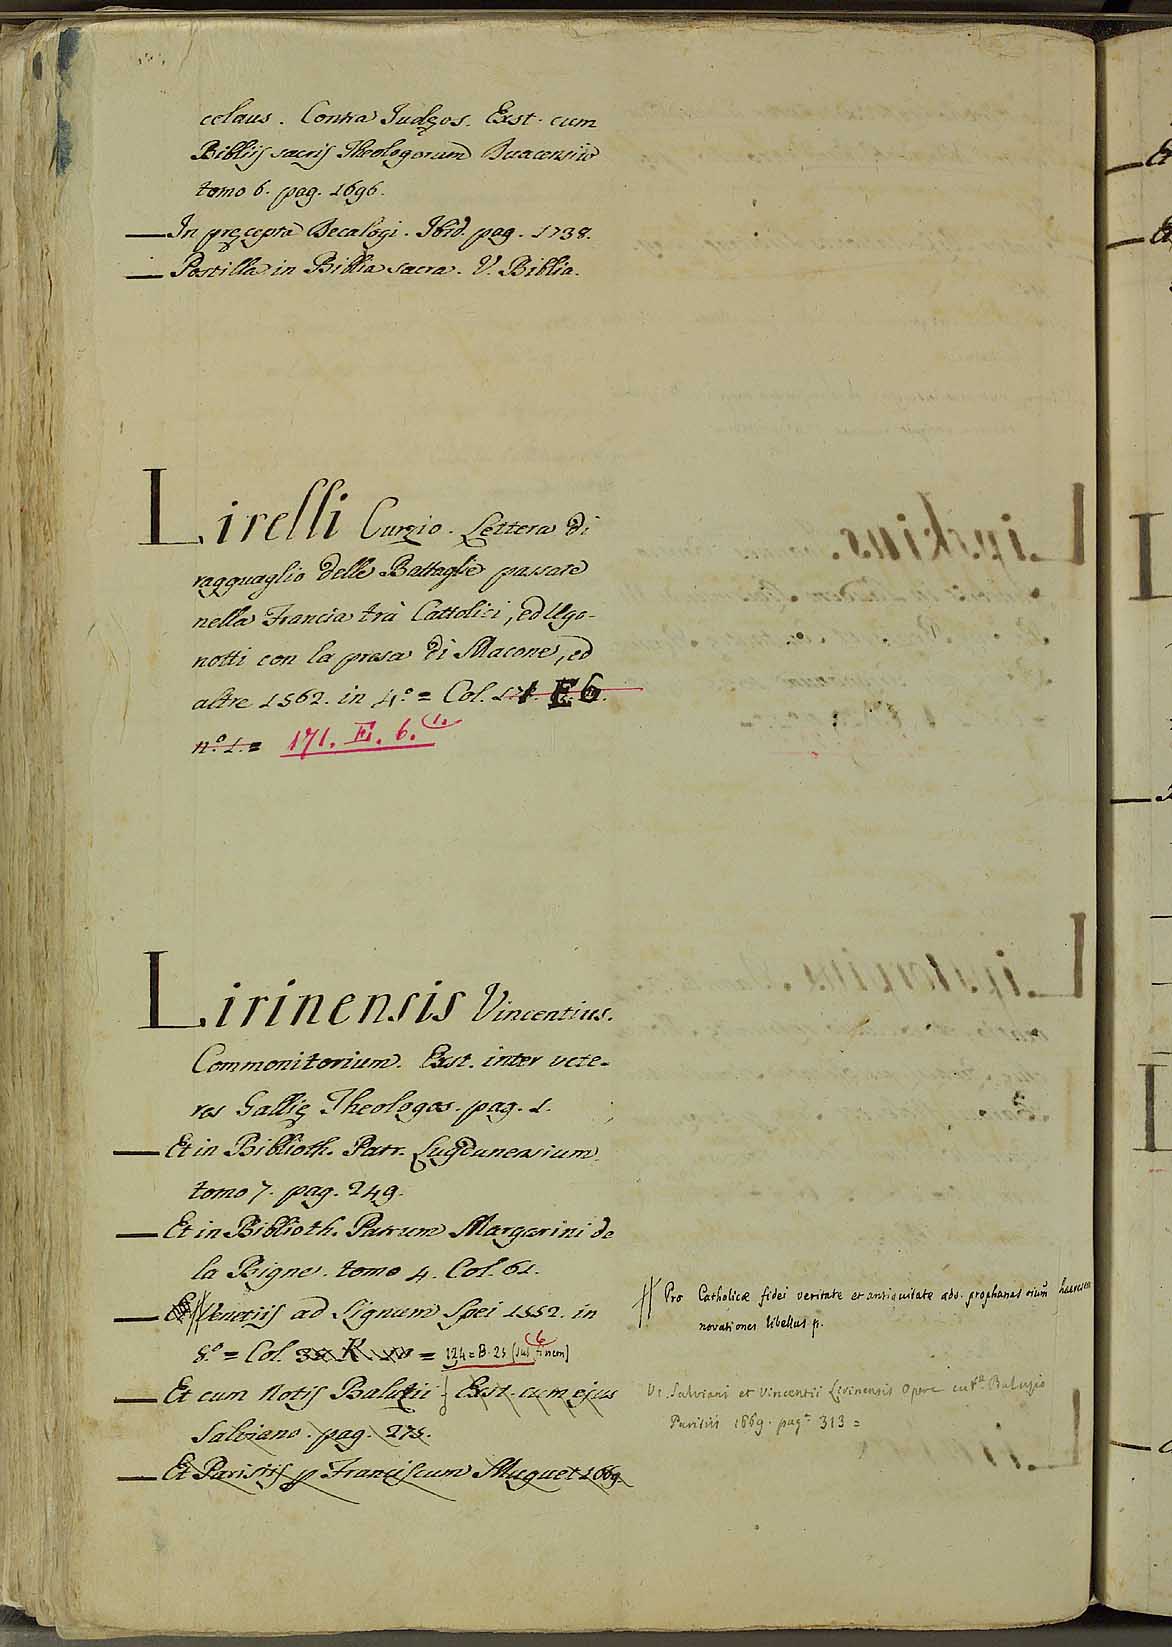 celaus. Contra Judęos. Exst. cum
Bibliis sacris Theologorum Duacensiū
tomo 6. pag. 1696.
— In pręcepta Decalogi. Ibid. pag. 1738.
— Postilla in Biblia sacra. V. Biblia.
Lirelli Curzio. Lettera di
ragguaglio delle Battaglie passate
nella Francia trà Cattolici, ed Ugo-
notti con la presa di Macone, ed
altre 1562. in 4.° = Col. E 6
n.° 1. = 171. E. 6. (1.
Lirinensis Vincentius.
Commonitorium. Exst. inter vete-
res Gallię Theologos. pag. 1.
— Et in Biblioth. Patr. Lugdunensium
tomo 7. pag. 249.
— Et in Biblioth. Patrum Margarini de
la Bigne. tomo 4. Col. 61.
— Et // Venetiis ad Signum Spei 1552. in
8.° = Col. 38 K = 124 = B. 25 (6
// Pro Catholicæ fidei veritate et antiquitate adv. prophanas oium haereseon
novationes libellus p.
— Et cum Notis Balutii Exst. cum ejus
Salviano. pag. 275.
Vc. Salviani et Vincentii Lirinensis Opere Baluzio
Parisiis 1669. pag. 313 =
— Et Parisiis p Franciscum Muguet 1669.
Lipskius.